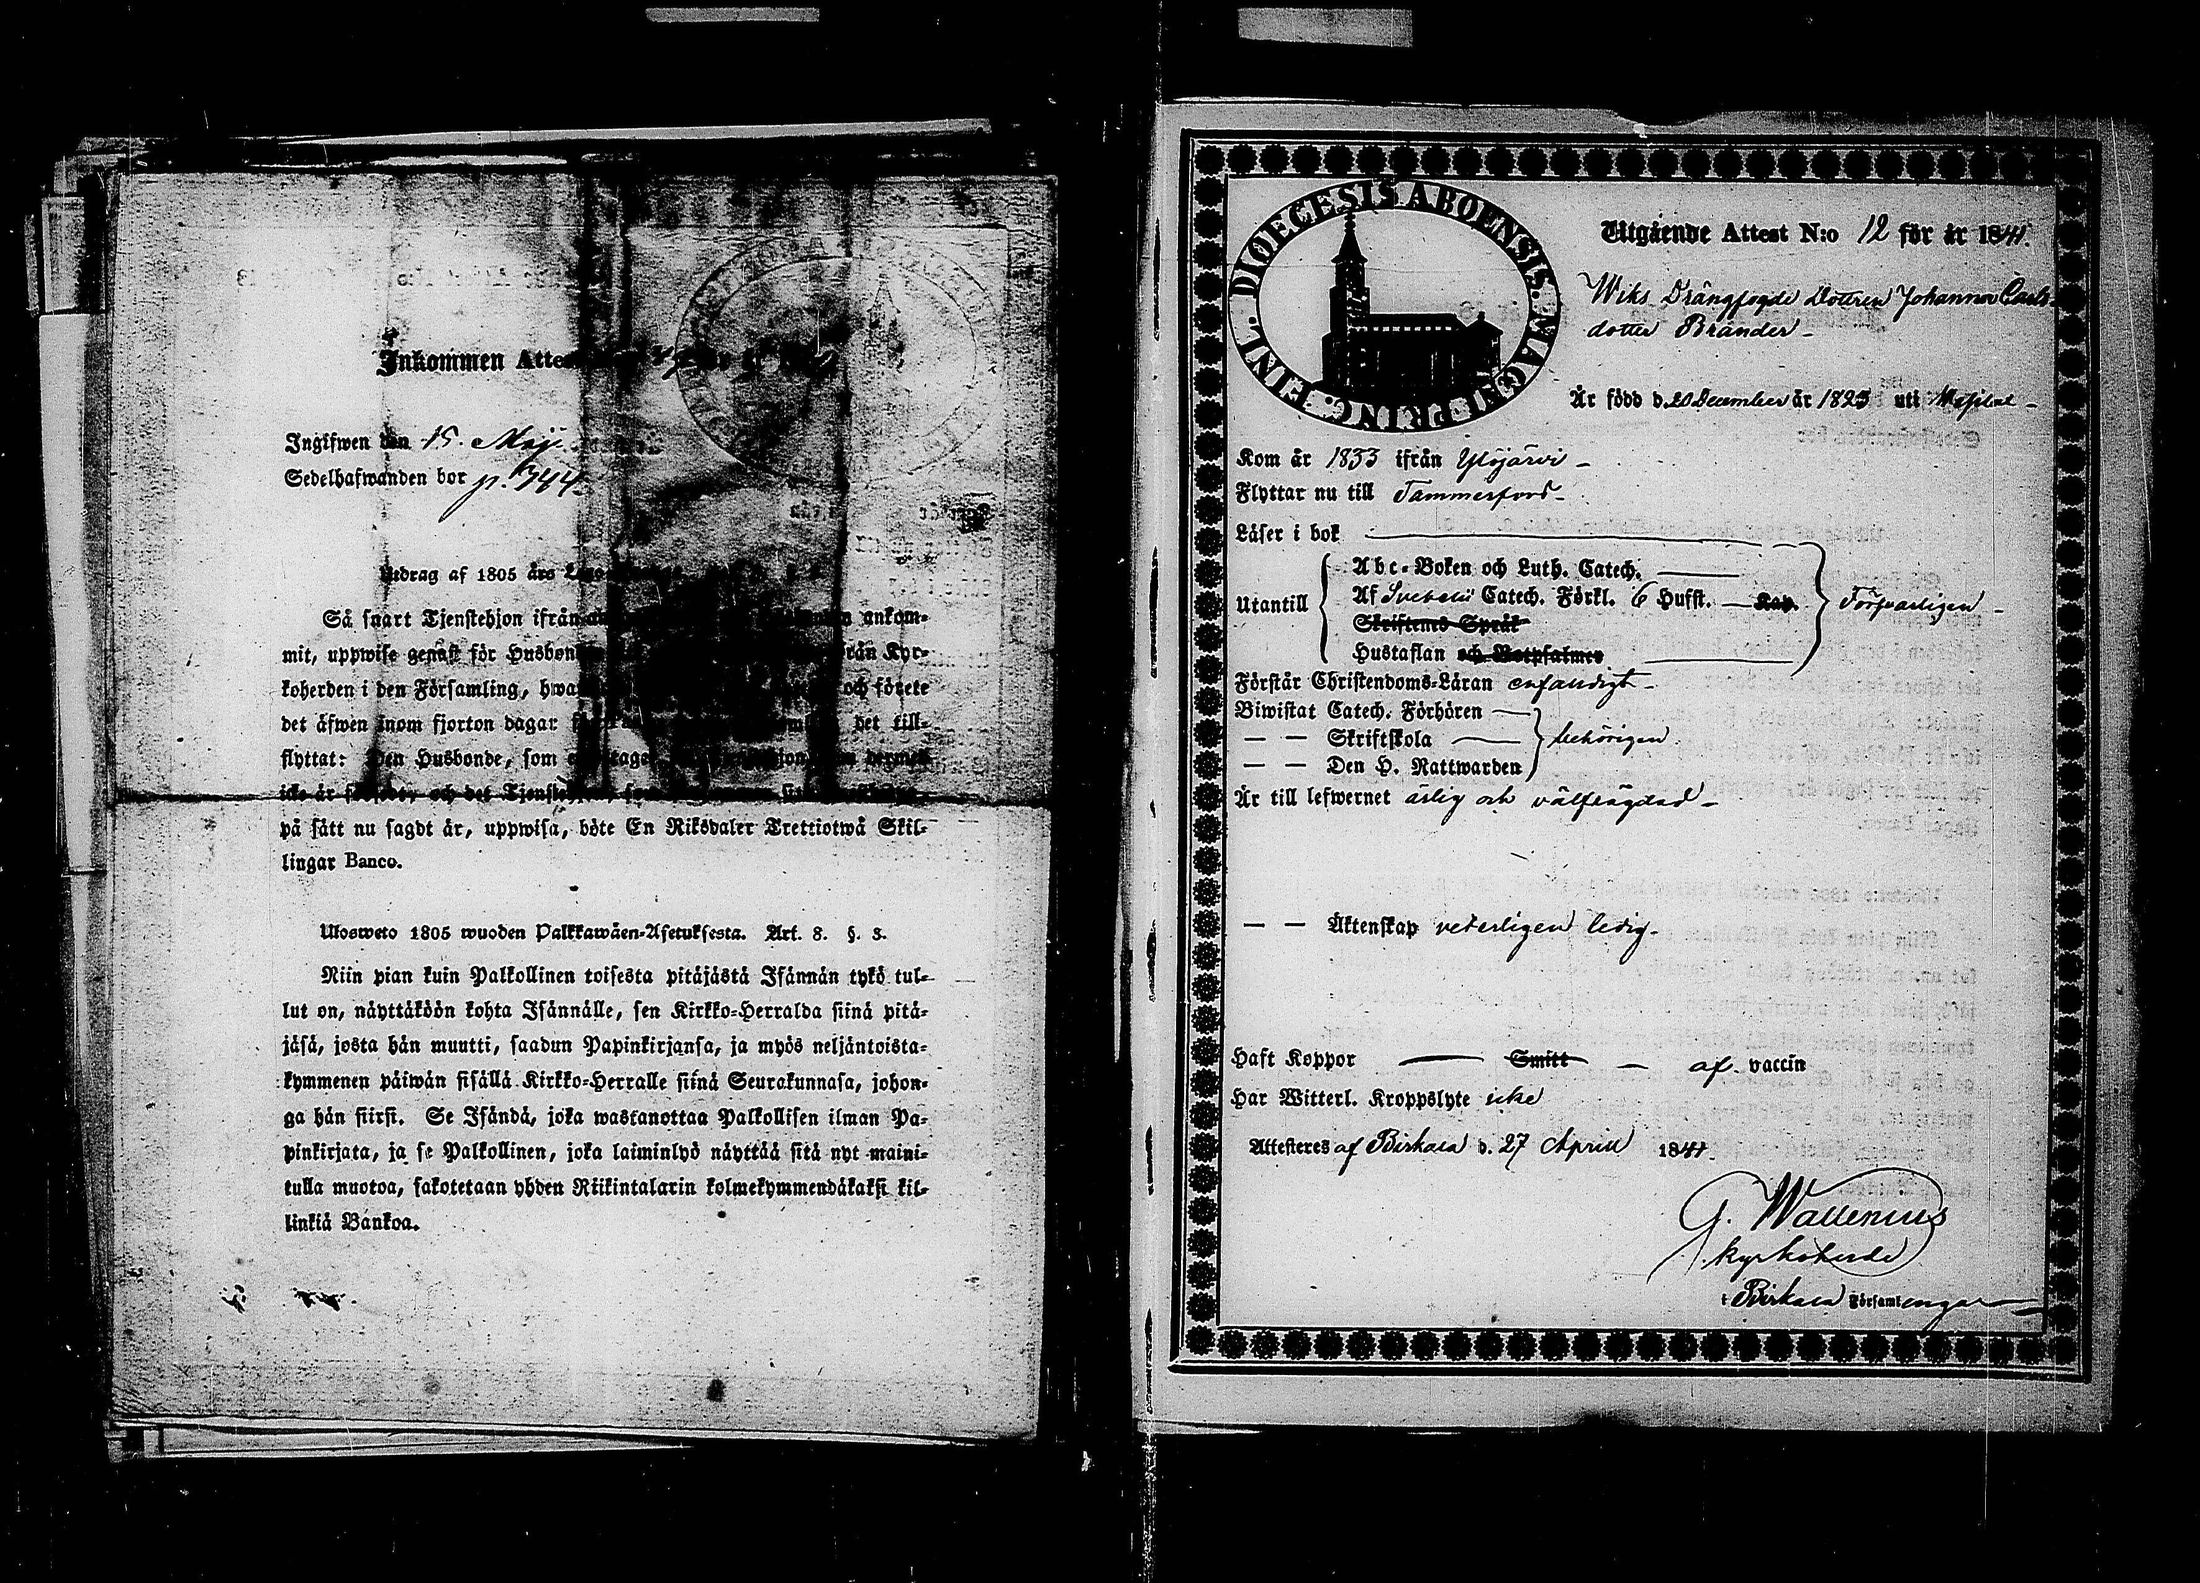 Inkommen Attest
Ingifwen den 15. Maji
Sedelhafwanden bor p. 344.
Utdrag af 1805 års
Så snart Tjenstehjon ifrån ankom-
mit, uppwise genast för Husbon från Kyr-
koherden i den Församling, hwa och förete
det äfwen inom fjorton dagar det till-
flyttat: Den Husbonde, som
icke är och det
på sätt nu sagdt är, uppwisa, böte En Riksdaler Trettiotwå Skil-
lingar Banco.
Ulosweto 1805 wuoden Palkkawäen-Asetuksesta. Art. 8. §. 3.
Niin pian kuin Palkollinen toisesta pitäjästä Isännän tykö tul-
lut on, näyttäköön kohta Isännälle, sen Kirkko-Herralda siinä pitä-
jäsä, josta hän muutti, saadun Papinkirjansa, ja myös neljäntoista-
kymmenen päiwän sisällä Kirkko-Herralle siinä Seurakunnasa, johon-
ga hän siirsi. Se Isändä, joka wastanottaa Palkollisen ilman Pa-
pinkirjata, ja se Palkollinen, joka laiminlyö näyttää sitä nyt maini-
tulla muotoa, sakotetaan yhden Riikintalarin kolmekymmendäkaksi kil-
linkiä Bankoa.
FINL. DIOECESIS ABOENSIS. MAGNI PRINC.
Utgående Attest N:o 12 för år 1841.
Wiks Drängfogde Dottren Johanna Carls-
dotter Brander
Är född d. 20 December år 1823 uti
Kom år 1833 ifrån Ylöjärvi
Flyttar nu till Tammerfors
Läser i bok
Utantill
Abc-Boken och Luth. Catech.
Af Svebelii Catech. Förkl. 6 Hufst. Kap. Försvarligen
Skriftens Språk
Hustaflan och Botpsalmer
Förstår Christendoms-Läran enfaldigt
Biwistat Catech. Förhören
— — Skriftskola behörigen
— — Den H. Nattwarden
Är till lefwernet ärlig och välfrägdad
— — Äktenskap veterligen ledig
Haft Koppor Smitt af vaccin
Har Witterl. Kroppslyte icke
Attesteres af Birkala d. 27 April 1841.
G. Wallenius
kyrkoherde
i Birkala Församlingar